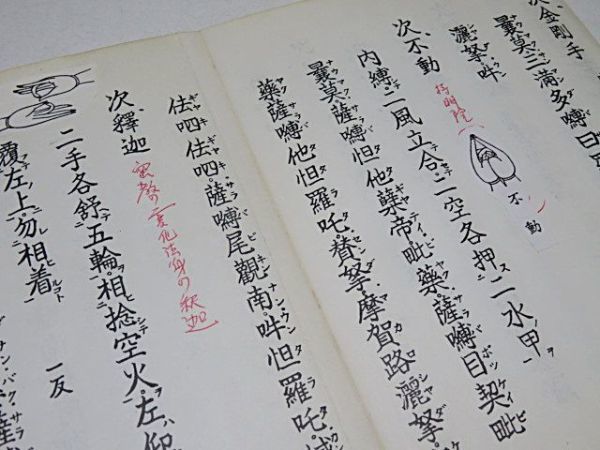 次金剛手
曩莫三滿多嚩日
灑拏吽
持明院ヘ
不動
次不動
内縛シテ二風立合セテ二空各押ス二水ノ甲ヲ
曩莫薩嚩怛他蘖帝毗藥薩嚩目契毗
藥薩嚩他怛羅吒賛拏摩賀路灑拏
佉呬佉呬薩嚩尾覲南吽怛羅吒
密教の変化法身の釈迦
次釋迦
二手各舒ヘ五輪ヲ相ヒ捻シテ空火ヲ左ハ仰
覆左ノ上ニ勿レ相着ルコト
一反